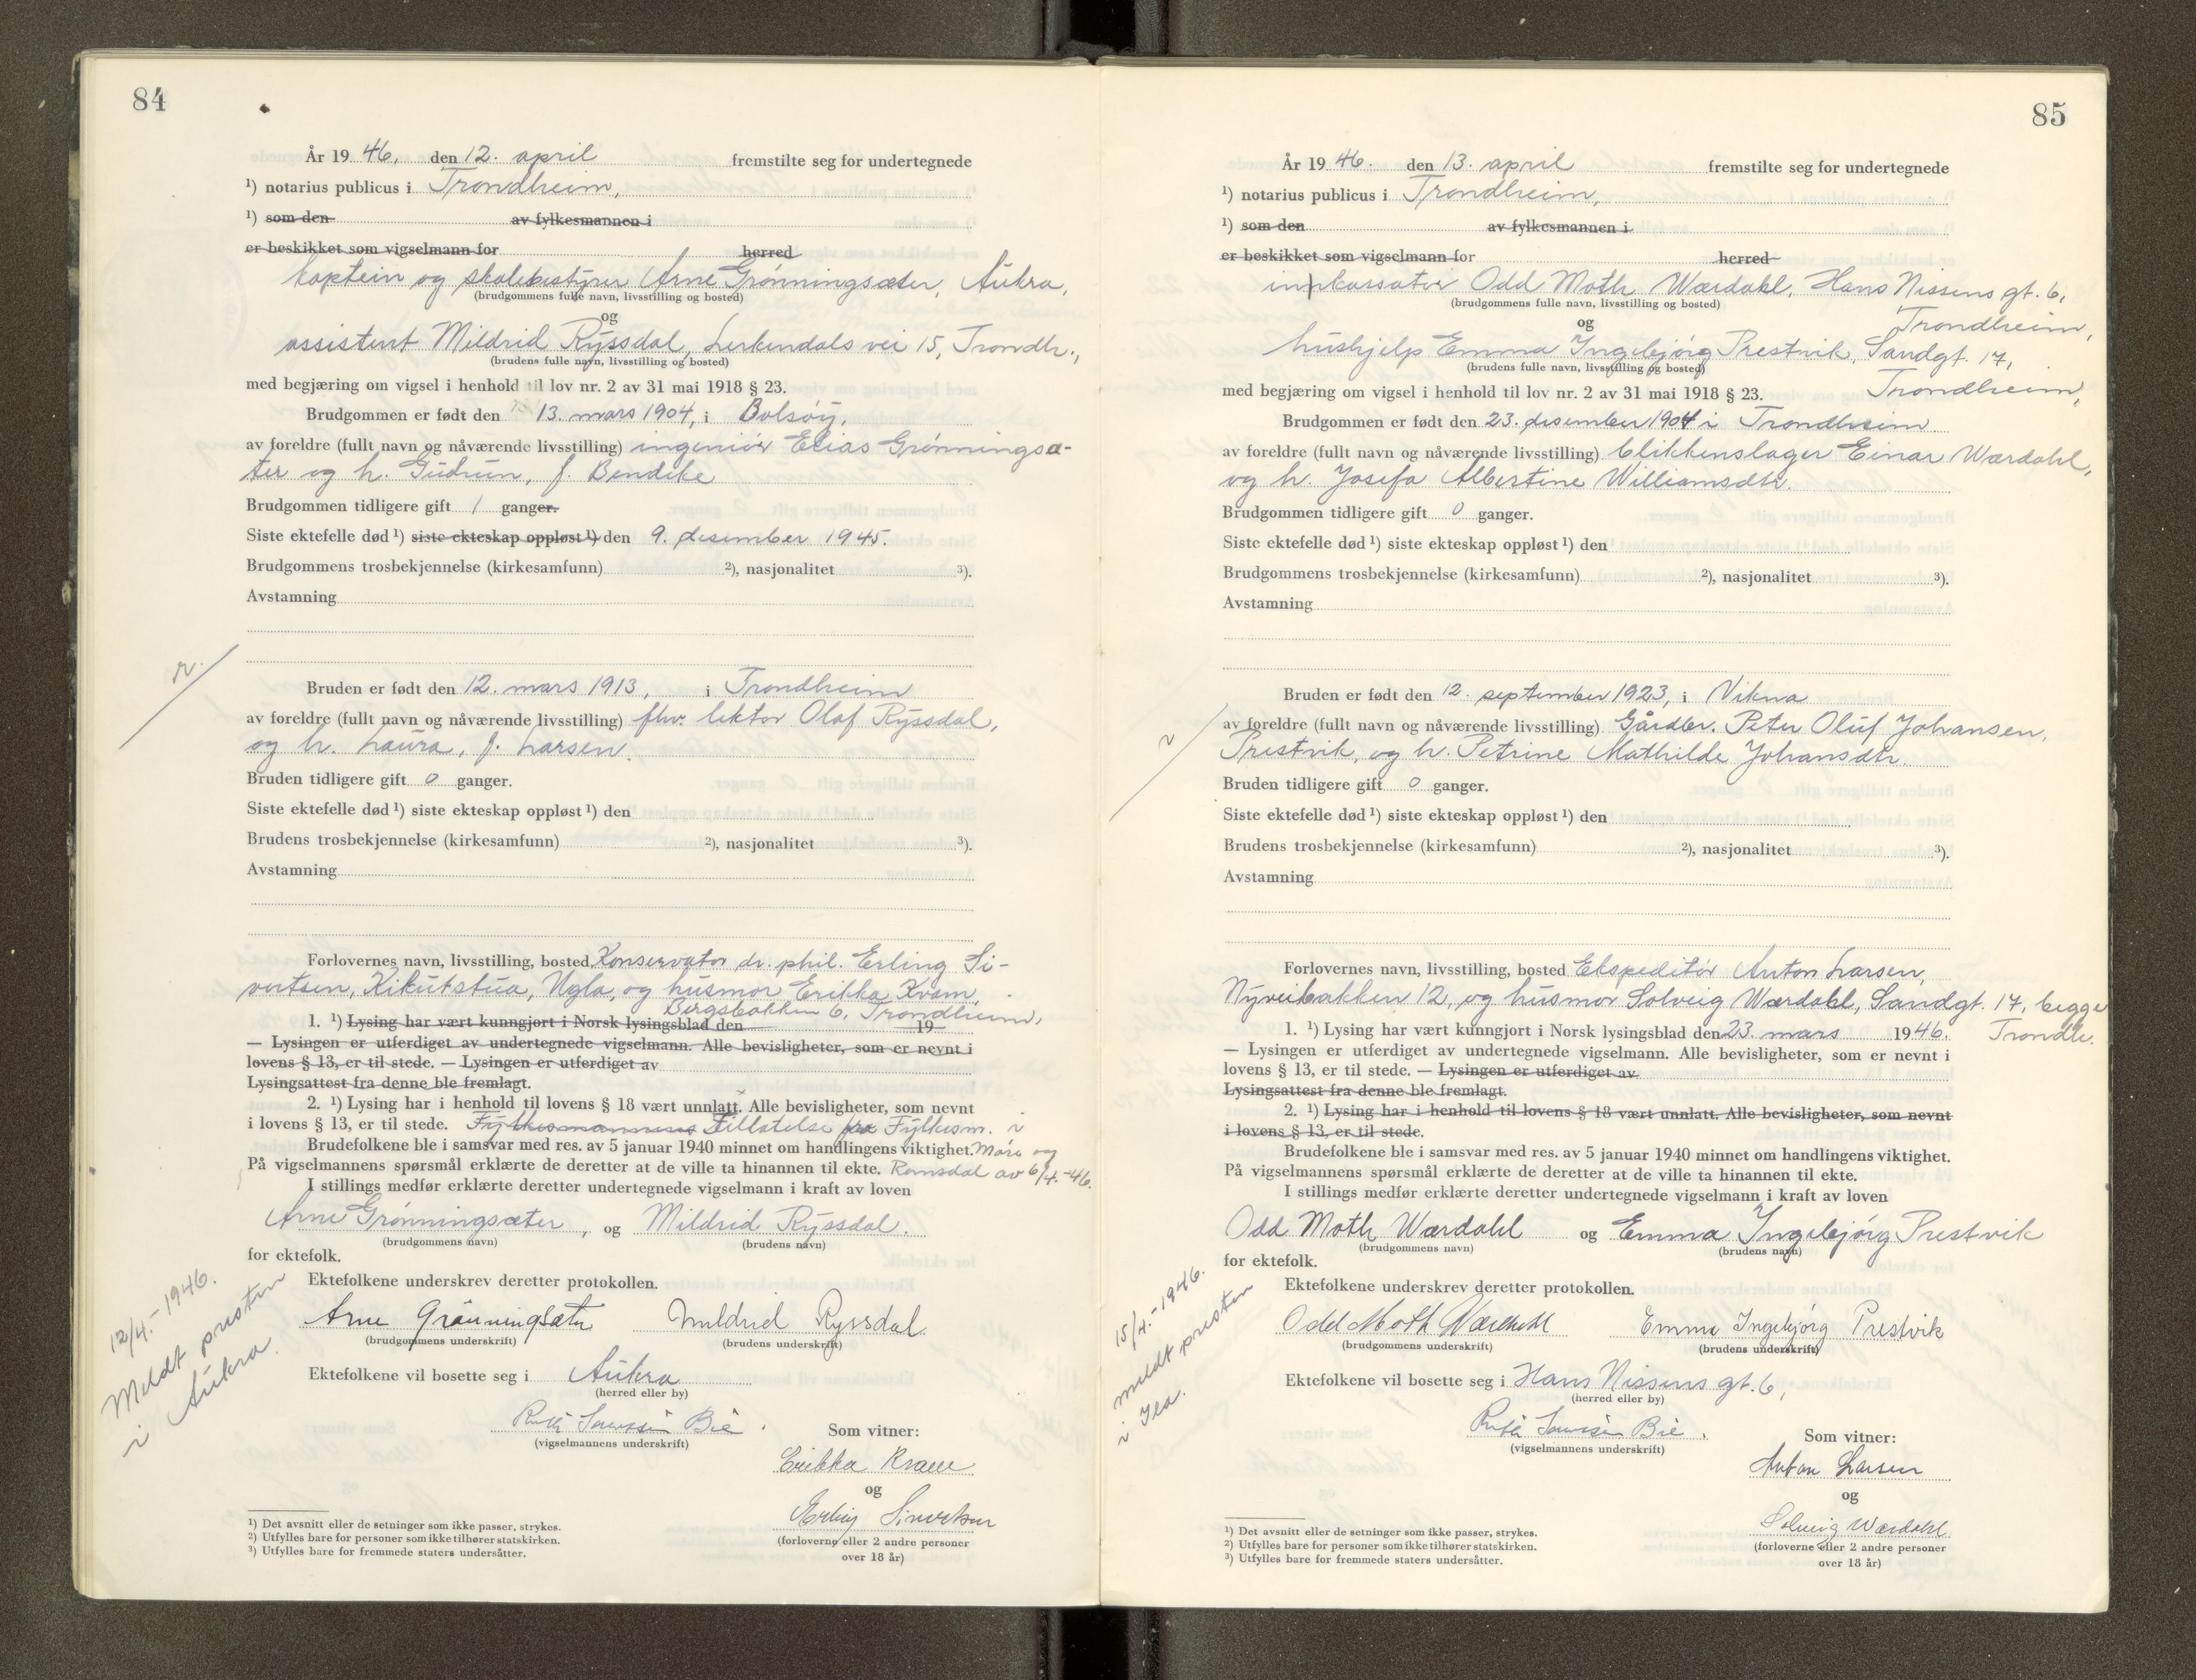 84
År 19 46, den 12. april fremstilte seg for undertegnede
¹) notarius publicus i Trondheim,
¹) som den av fylkesmannen i
er beskikket som vigselmann for herred
kaptein og skolebestyrer Arne Grønningsæter, Aukra,
(brudgommens fulle navn, livsstilling og bosted)
og
assistent Mildrid Ryssdal, Lerkendals vei 15, Trondh.,
(brudens fulle navn, livsstilling og bosted)
med begjæring om vigsel i henhold til lov nr. 2 av 31 mai 1918 § 23.
Brudgommen er født den 13. mars 1904, i Bolsøy,
av foreldre (fullt navn og nåværende livsstilling) ingeniør Elias Grønningsæ-
ter og h. Gudrun, f. Bendike
Brudgommen tidligere gift 1 ganger.
Siste ektefelle død ¹) siste ekteskap oppløst ¹) den 9. desember 1945.
Brudgommens trosbekjennelse (kirkesamfunn) ²), nasjonalitet ³).
Avstamning
r.
Bruden er født den 12. mars 1913, i Trondheim
av foreldre (fullt navn og nåværende livsstilling) fhv. lektor Olaf Ryssdal,
og h. Laura, f. Larsen.
Bruden tidligere gift 0 ganger.
Siste ektefelle død ¹) siste ekteskap oppløst ¹) den
Brudens trosbekjennelse (kirkesamfunn) ²), nasjonalitet ³).
Avstamning
Forlovernes navn, livsstilling, bosted Konservator dr. phil. Erling Si-
vertsen, Kikutstua, Ugla, og husmor Erikka Kvam,
Bergsbakken 6, Trondheim,
1. ¹) Lysing har vært kunngjort i Norsk lysingsblad den 19
— Lysingen er utferdiget av undertegnede vigselmann. Alle bevisligheter, som er nevnt i
lovens § 13, er til stede. — Lysingen er utferdiget av
Lysingsattest fra denne ble fremlagt.
2. ¹) Lysing har i henhold til lovens § 18 vært unnlatt. Alle bevisligheter, som nevnt
i lovens § 13, er til stede. Fylkesmannens Tillatelse fra Fylkesm. i
Brudefolkene ble i samsvar med res. av 5 januar 1940 minnet om handlingens viktighet. Møre og
På vigselmannens spørsmål erklærte de deretter at de ville ta hinannen til ekte. Romsdal av 6/4.-46.
I stillings medfør erklærte deretter undertegnede vigselmann i kraft av loven
Arne Grønningsæter, og Mildrid Ryssdal.
(brudgommens navn) (brudens navn)
for ektefolk.
Ektefolkene underskrev deretter protokollen.
Arne Grønningsæter Mildrid Ryssdal.
(brudgommens underskrift) (brudens underskrift)
12/4.-1946.
Meldt presten
i Aukra.
Ektefolkene vil bosette seg i Aukra
(herred eller by)
Ruth Bie.
(vigselmannens underskrift)
Som vitner:
Erikka Kvam
og
Erling Sivertsen
(forloverne eller 2 andre personer
over 18 år)
¹) Det avsnitt eller de setninger som ikke passer, strykes.
²) Utfylles bare for personer som ikke tilhører statskirken.
³) Utfylles bare for fremmede staters undersåtter.
85
År 19 46. den 13. april fremstilte seg for undertegnede
¹) notarius publicus i Trondheim,
¹) som den av fylkesmannen i
er beskikket som vigselmann for herred
inkassator Odd Moth Wærdahl, Hans Nissens gt. 6,
(brudgommens fulle navn, livsstilling og bosted)
og Trondheim,
hushjelp Emma Ingebjørg Prestvik, Sandgt. 17,
(brudens fulle navn, livsstilling og bosted)
med begjæring om vigsel i henhold til lov nr. 2 av 31 mai 1918 § 23. Trondheim,
Brudgommen er født den 23. desember 1904 i Trondheim
av foreldre (fullt navn og nåværende livsstilling) blikkenslager Einar Wærdahl,
og h. Josefa Albertine Williamsdtr.
Brudgommen tidligere gift 0 ganger.
Siste ektefelle død ¹) siste ekteskap oppløst ¹) den
Brudgommens trosbekjennelse (kirkesamfunn) ²), nasjonalitet ³).
Avstamning
r
Bruden er født den 12. september 1923, i Vikna
av foreldre (fullt navn og nåværende livsstilling) Gårdbr. Peter Oluf Johansen,
Prestvik, og h. Petrine Mathilde Johansdtr.
Bruden tidligere gift 0 ganger.
Siste ektefelle død ¹) siste ekteskap oppløst ¹) den
Brudens trosbekjennelse (kirkesamfunn) ²), nasjonalitet ³).
Avstamning
Forlovernes navn, livsstilling, bosted Ekspeditør Anton Larsen,
Nyveibakken 12, og husmor Solveig Wærdahl, Sandgt. 17, begge
1. ¹) Lysing har vært kunngjort i Norsk lysingsblad den 23. mars 1946. Trondh.
— Lysingen er utferdiget av undertegnede vigselmann. Alle bevisligheter, som er nevnt i
lovens § 13, er til stede. — Lysingen er utferdiget av
Lysingsattest fra denne ble fremlagt.
2. ¹) Lysing har i henhold til lovens § 18 vært unnlatt. Alle bevisligheter, som nevnt
i lovens § 13, er til stede.
Brudefolkene ble i samsvar med res. av 5 januar 1940 minnet om handlingens viktighet.
På vigselmannens spørsmål erklærte de deretter at de ville ta hinannen til ekte.
I stillings medfør erklærte deretter undertegnede vigselmann i kraft av loven
Odd Moth Wærdahl og Emma Ingebjørg Prestvik
(brudgommens navn) (brudens navn)
for ektefolk.
Ektefolkene underskrev deretter protokollen.
Odd Moth Wærdahl Emma Ingebjørg Prestvik
(brudgommens underskrift) (brudens underskrift)
15/4.-1946.
meldt presten
i Ila.
Ektefolkene vil bosette seg i Hans Nissens gt. 6,
(herred eller by)
Ruth Bie.
(vigselmannens underskrift)
Som vitner:
Anton Larsen
og
Solveig Wærdahl
(forloverne eller 2 andre personer
over 18 år)
¹) Det avsnitt eller de setninger som ikke passer, strykes.
²) Utfylles bare for personer som ikke tilhører statskirken.
³) Utfylles bare for fremmede staters undersåtter.